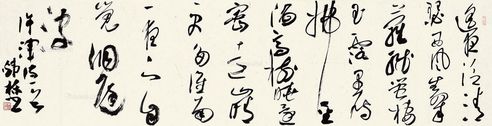 遥夜泛清
瑟西风生翠
萝残萤栖
玉露早雁
拂金
河高树晓还
密远山晴
更多淮南
一叶下自
觉洞庭
波
许浑诗